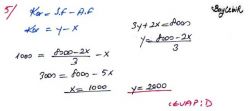 5/ Kar = S.F - A.F
Kar = y - x
3y + 2x = 8000
y = 8000 - 2x / 3
1000 = 8000 - 2x / 3 - x
3000 = 8000 - 5x
x = 1000 y = 2000
CEVAP: D